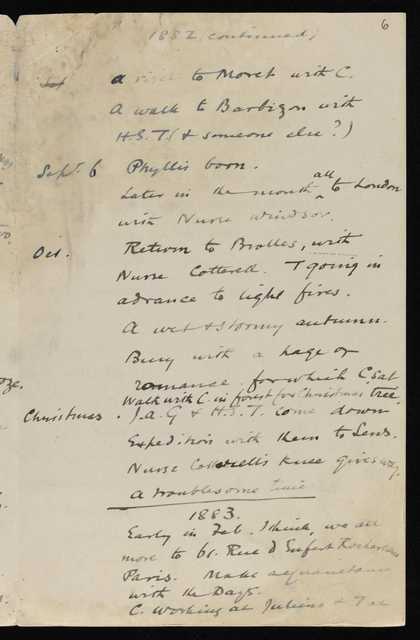 6
1882 (continued)
a visit to Moret with C.
A walk to Barbizon with
H.S.T. (& someone else?)
Sept. 6 Phyllis born.
Later in the month all to London
with Nurse Windsor.
Oct. Return to Brolles, with
Nurse Cottered. I going in
advance to light fires.
A wet & stormy autumn.
Busy with a page or
romance for which C. sat
Walk with C. in forest for Christmas tree.
Christmas. J.A.G & H.S.T. come down
Expedition with them to Sens.
Nurse knee gives way.
A troublesome time
1883.
Early in Feb. I think, we all
move to 61. Rue d Enfert Rochereau
Paris. Make acquaintance
with the Days.
C. working at Juliens &